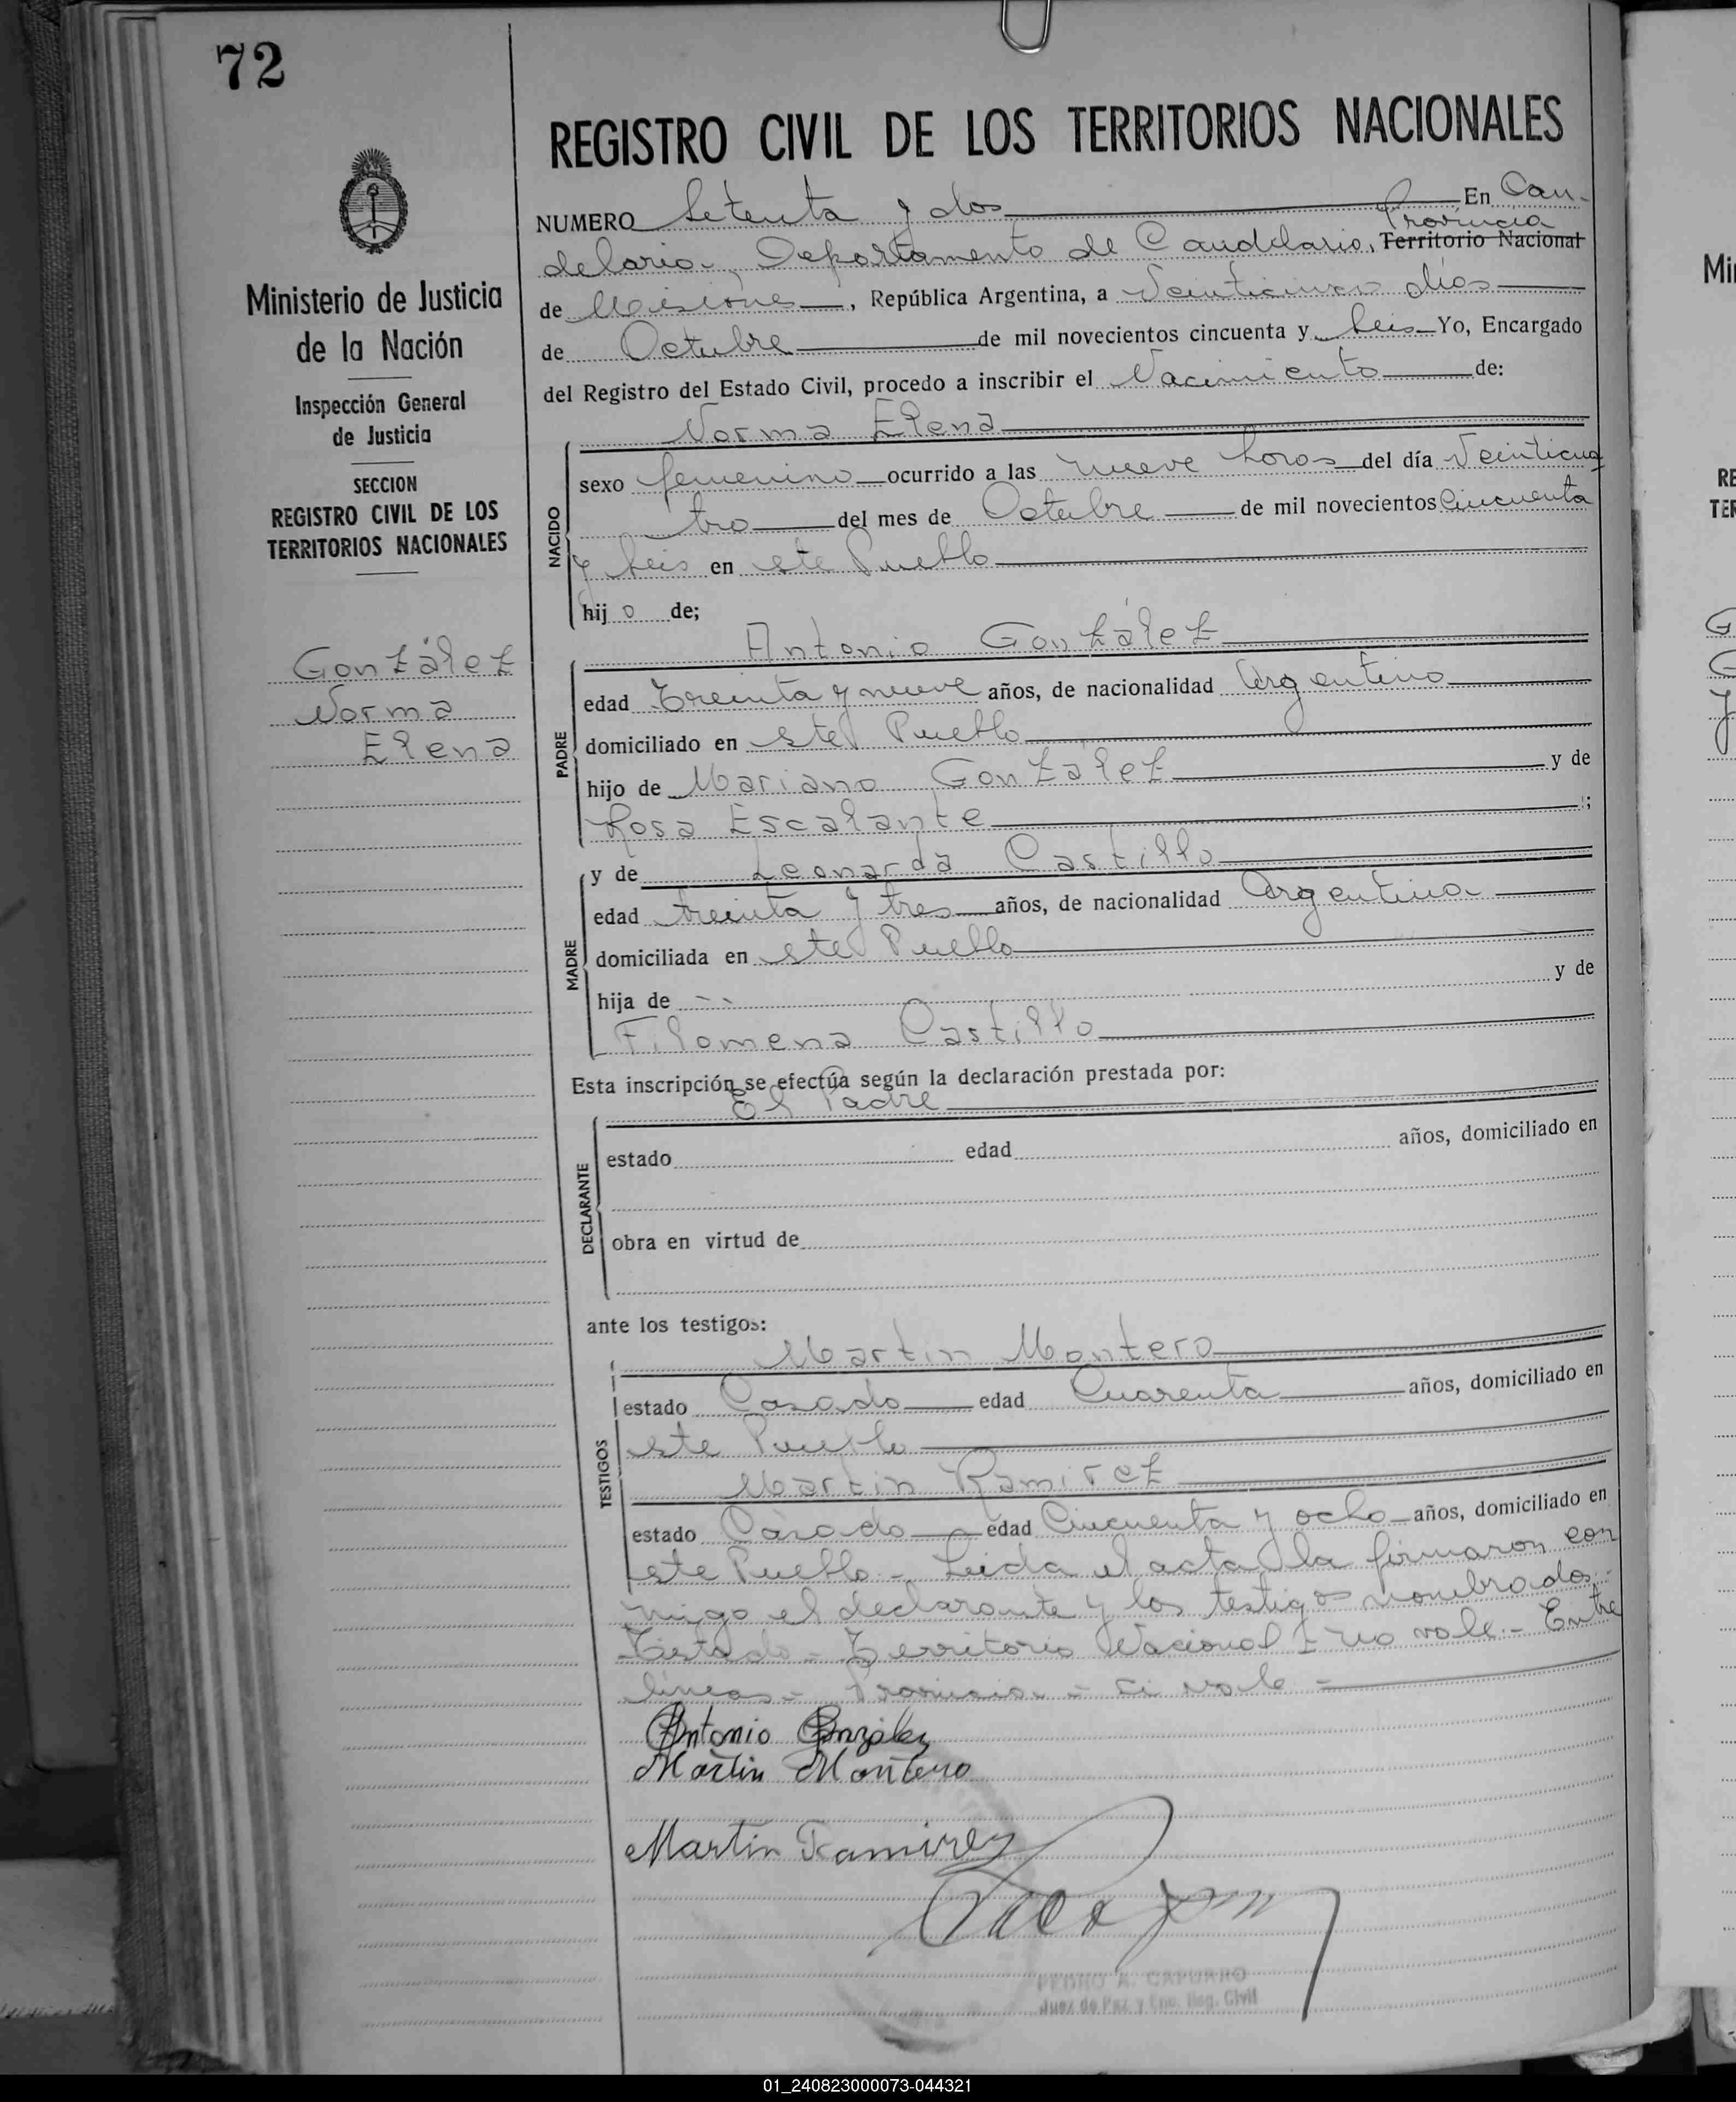 72
REGISTRO CIVIL DE LOS TERRITORIOS NACIONALES
Ministerio de Justicia
de la Nación
Inspección General
de Justicia
SECCION
REGISTRO CIVIL DE LOS
TERRITORIOS NACIONALES
González
Norma
Elena
NUMERO Setenta y dos En Can-
Provincia
delaria, Departamento de Candelaria, Territorio Nacional
de Misiones, República Argentina, a Veinticinco días
de Octubre de mil novecientos cincuenta y Seis Yo, Encargado
del Registro del Estado Civil, procedo a inscribir el Nacimiento de:
Norma Elena
NACIDO
sexo femenino ocurrido a las nueve horas del día Veinticua
tro del mes de Octubre de mil novecientos Cincuenta
y Seis en este Pueblo
hij o de;
Antonio González
PADRE
edad Treinta y nueve años, de nacionalidad Argentino
domiciliado en este Pueblo
hijo de Mariano González y de
Rosa Escalante ;
y de Leonarda Castillo
MADRE
edad treinta y tres años, de nacionalidad Argentina
domiciliada en este Pueblo
hija de - - y de
Filomena Castillo
Esta inscripción se efectúa según la declaración prestada por:
El Padre
DECLARANTE
estado edad años, domiciliado en
obra en virtud de
ante los testigos:
Martin Montero
TESTIGOS
estado Casado edad Cuarenta años, domiciliado en
este Pueblo
Martin Ramirez
estado Casado edad Cincuenta y ocho años, domiciliado en
este Pueblo - Leida el acta la firmaron con
migo el declarante y los testigos nombrados.-
Testado - Territorio Nacional - no vale.- Entre
lineas - Provincia - si vale -
Antonio González
Martin Montero
Martin Ramirez
PEDRO A. CAPURRO
Juez de Paz y Enc. Reg. Civil
01_240823000073-044321